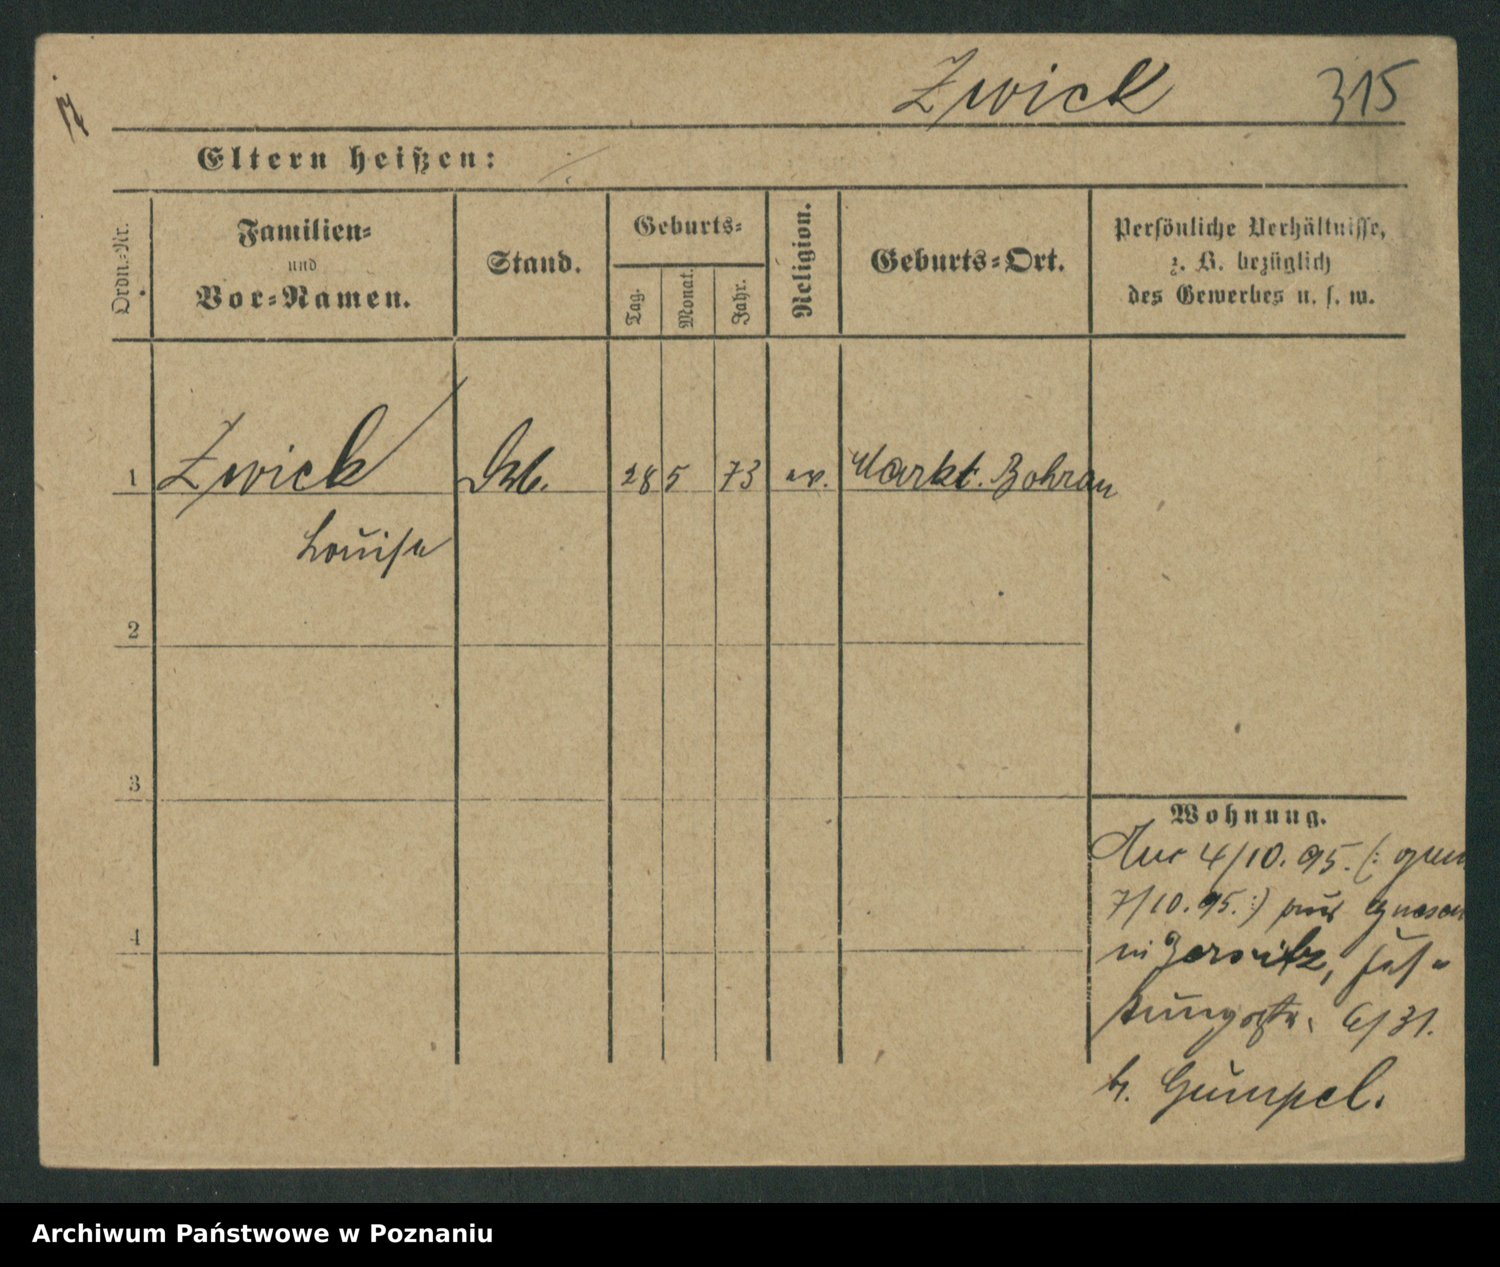 Zwick 315
Eltern heißen:
Ordn.-Nr.
Familien-
und
Vor-Namen.
Stand.
Geburts-
Tag.
Monat.
Jahr.
Religion.
Geburts-Ort.
Persönliche Verhältnisse,
z. B. bezüglich
des Gewerbes u. s. w.
1 Zwick 28 5 73 ev. Markt. Bohrau
Louise
2
3
4
Wohnung.
4/10. 95. (: gem
7/10. 95. :) aus Gnesen
in Jersitz, Fes-
tungsstr. 6/31.
b. Gumpel.
Archiwum Państwowe w Poznaniu